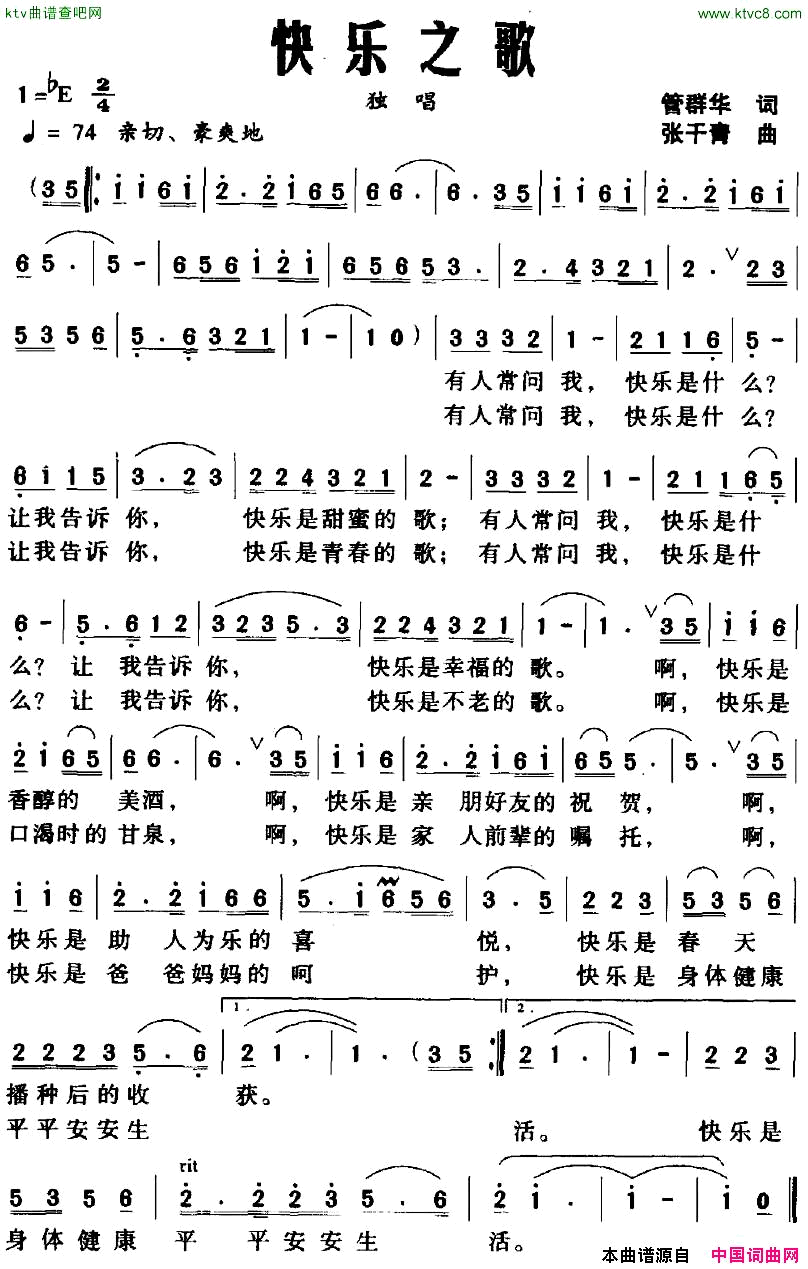 ktv曲谱查吧网 www.ktvc8.com
快乐之歌
1=♭E 2/4 独唱 管群华 词
♩= 74 亲切、豪爽地 张干青 曲
(35 ‖: i i 6 i | 2·2 i 6 5 | 6 6· | 6·35 | i i 6 i | 2·2 i 6 i |
6 5· | 5 - | 6 5 6 i 2 i | 6 5 6 5 3· | 2·4 3 2 1 | 2·∨ 2 3 |
5 3 5 6 | 5·6 3 2 1 | 1 - | 1 0 ) | 3 3 3 2 | 1 - | 2 1 1 6 | 5 - |
有人常问我, 快乐是什么?
有人常问我, 快乐是什么?
6 i 1 5 | 3·2 3 | 2 2 4 3 2 1 | 2 - | 3 3 3 2 | 1 - | 2 1 1 6 5 |
让我告诉你, 快乐是甜蜜的 歌; 有人常问我, 快乐是什
让我告诉你, 快乐是青春的 歌; 有人常问我, 快乐是什
6 - | 5·6 1 2 | 3 2 3 5·3 | 2 2 4 3 2 1 | 1 - | 1·∨ 3 5 | i i 6 |
么? 让 我告诉你, 快乐是幸福的 歌。 啊, 快乐是
么? 让 我告诉你, 快乐是不老的 歌。 啊, 快乐是
2 i 6 5 | 6 6· | 6·∨ 3 5 | i i 6 | 2·2 i 6 i | 6 5 5· | 5·∨ 3 5 |
香醇的 美酒, 啊, 快乐是 亲 朋好友的 祝 贺, 啊,
口渴时的 甘泉, 啊, 快乐是 家 人前辈的 嘱 托, 啊,
i i 6 | 2·2 i 6 6 | 5·i 6 5 6 | 3·5 | 2 2 3 | 5 3 5 6 |
快乐是 助 人为乐的 喜 悦, 快乐是 春 天
快乐是 爸 爸妈妈的 呵 护, 快乐是 身体健康
1. 2.
2 2 2 3 5·6 | 2 1· | 1· ( 3 5 :‖ 2 1· | 1 - | 2 2 3 |
播种后的收 获。
平平安安生 活。 快乐是
rit
5 3 5 6 | 2·2 2 3 5·6 | 2 i· | i - | i 0 ‖
身体健康 平 平安安生 活。
本曲谱源自 中国词曲网